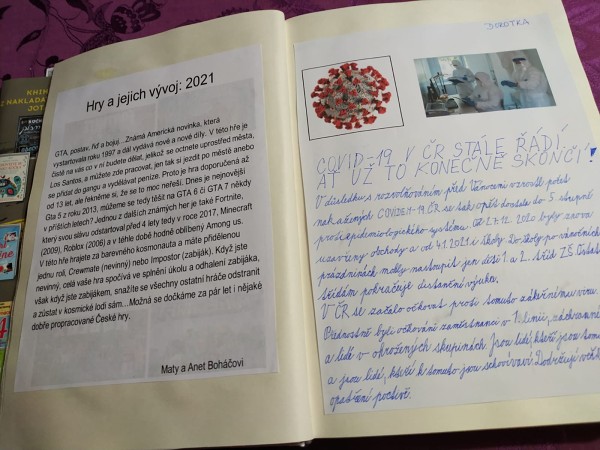 KNIH
Z NAKLADA
JOT
Hry a jejich vývoj: 2021
GTA, postav, řiď a bojuj...Známá Americká novinka, která
vystartovala roku 1997 a dál vydává nové a nové díly. V této hře je
čistě na vás co v ní budete dělat, jelikož se octnete uprostřed města,
Los Santos, a můžete zde pracovat, jen tak si jezdit po městě anebo
se přidat do gangu a vydělávat peníze. Proto je hra doporučená až
od 13 let, ale řekněme si, že se to moc neřeší. Dnes je nejnovější
Gta 5 z roku 2013, můžeme se tedy těšit na GTA 6 či GTA 7 někdy
v příštích letech? Jednou z dalších známých her je také Fortnite,
který svou slávu odstartoval před 4 lety tedy v roce 2017, Minecraft
(2009), Roblox (2006) a v téhle době hodně oblíbený Among us.
V této hře hrajete za barevného kosmonauta a máte přidělenou
jednu roli, Crewmate (nevinný) nebo Impostor (zabiják). Když jste
nevinný, celá vaše hra spočívá ve splnění úkolu a odhalení zabijáka,
však když jste zabijákem, snažíte se všechny ostatní hráče odstranit
a zůstat v kosmické lodi sám...Možná se dočkáme za pár let i nějaké
dobře propracované České hry.
Maty a Anet Boháčovi
DOROTKA
COVID-19 V ČR STÁLE ŘÁDÍ,
AŤ UŽ TO KONEČNĚ SKONČÍ!
V důsledku s rozvolňováním před Vánocemi vzrostl počet
nakažených COVIDEM-19. ČR se tak opět dostala do 5. stupně
protiepidemiologického systému. Od 27.12. 2020 byly znovu
uzavřeny obchody a od 4.1.2021 i školy. Do školy po vánočních
prázdninách mohly nastoupit jen děti 1. a 2. tříd ZŠ. Ostat
třídám pokračuje distanční výuka.
V ČR se začalo očkovat proti tomuto zákeřnému viru.
Přednostně byli očkováni zaměstnanci v
a lidé v ohrožených skupinách. Jsou lidé, kteří jsou
a jsou lidé, kteří k tomuto jsou Dodržujte
opatření poctivě.